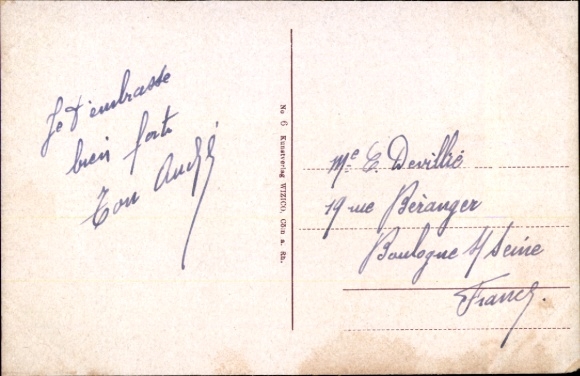 Je t'embrasse
bien fort
Ton André
No 6 Kunstverlag WIZICO, Cöln a. Rh.
Me E. Devillié
19 rue Béranger
Boulogne s/ Seine
France.